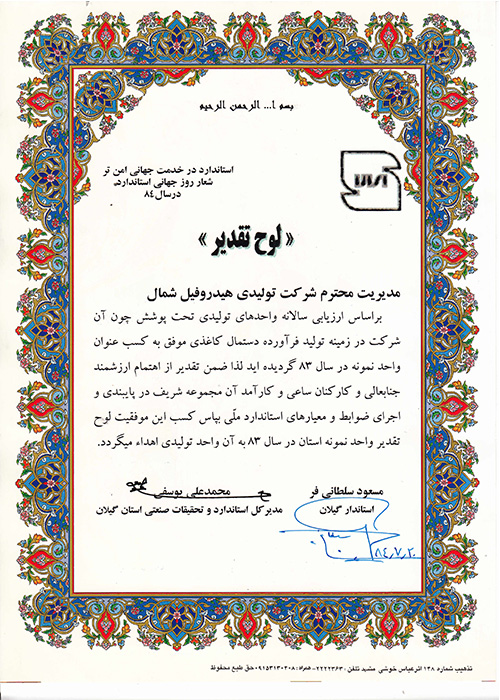 بسم ا... الرحمن الرحیم
استاندارد در خدمت جهانی امن تر
شعار روز جهانی استاندارد
در سال ۸۴
« لوح تقدیر »
مدیریت محترم شرکت تولیدی هیدروفیل شمال
براساس ارزیابی سالانه واحدهای تولیدی تحت پوشش چون آن
شرکت در زمینه تولید فرآورده دستمال کاغذی موفق به کسب عنوان
واحد نمونه در سال ۸۳ گردیده اید لذا ضمن تقدیر از اهتمام ارزشمند
جنابعالی و کارکنان ساعی و کارآمد آن مجموعه شریف در پایبندی و
اجرای ضوابط و معیارهای استاندارد ملّی بپاس کسب این موفقیت لوح
تقدیر واحد نمونه استان در سال ۸۳ به آن واحد تولیدی اهداء میگردد.
مسعود سلطانی فر
استاندار گیلان
محمدعلی یوسفی
مدیرکل استاندارد و تحقیقات صنعتی استان گیلان
۸۴/۷/۲۰
تذهیب شماره ۱۳۸ اثر عباس خوشی مشهد تلفن: ۲۲۲۲۳۶۳ - همراه: ۰۹۱۵۳۱۳۰۲۰۸ حق طبع محفوظ